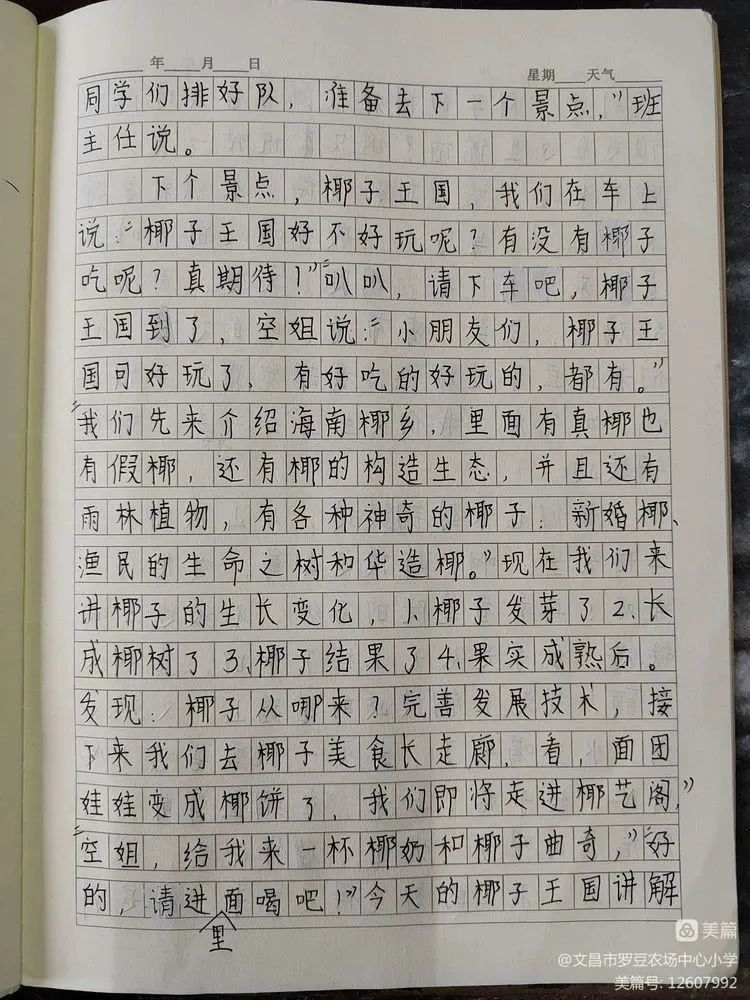 年 月 日
星期 天气
同学们排好队，准备去下一个景点，”班
主任说。
下个景点，椰子王国，我们在车上
说：“椰子王国好不好玩呢？有没有椰子
吃呢？真期待！”“叭叭，请下车吧，椰子
王国到了，空姐说：“小朋友们，椰子王
国可好玩了，有好吃的好玩的，都有。”
“我们先来介绍海南椰乡，里面有真椰也
有假椰，还有椰的构造生态，并且还有
雨林植物，有各种神奇的椰子：新婚椰、
渔民的生命之树和华造椰。”现在我们来
讲椰子的生长变化，1、椰子发芽了2、长
成椰树了3、椰子结果了4、果实成熟后。
发现：椰子从哪来？完善发展技术，接
下来我们去椰子美食长走廊，看，面团
娃娃变成椰饼了，我们即将走进椰艺阁，”
“空姐，给我来一杯椰奶和椰子曲奇，”“好
的，请进里面喝吧！”今天的椰子王国讲解
美篇
@文昌市罗豆农场中心小学
美篇号: 12607992